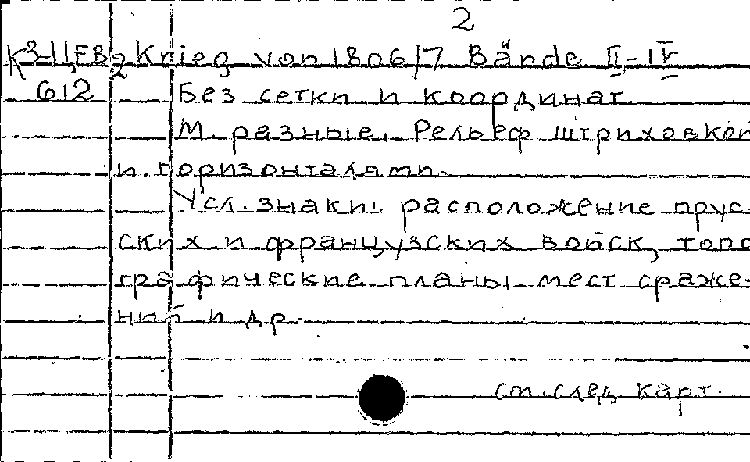 2
К3-Ц.ЕВ2 Krieg von 1806/7 Bände II-IV
612 Без сетки и координат.
М. разные. Рельеф штриховкой
и горизонталями.
Усл. знаки: расположение прус-
ских и французских войск, топо
графические планы мест сраже-
ний и др.
см. след. карт.